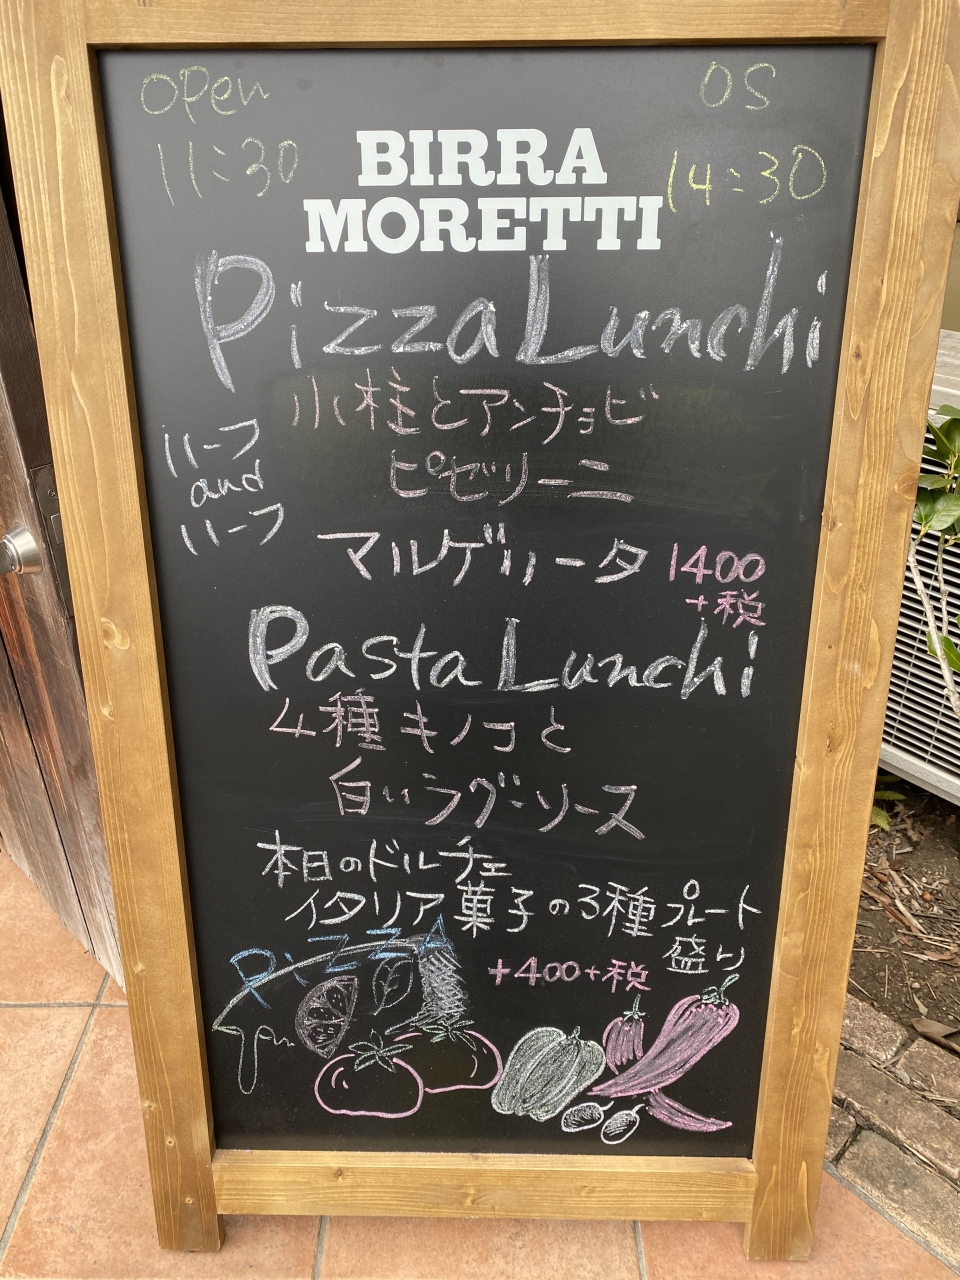 open
11:30
OS
14:30
BIRRA
MORETTI
Pizza Lunchi
小柱とアンチョビ
ピゼリーニ
ハーフ
and
ハーフ
マルゲリータ 1400
+税
Pasta Lunchi
4種キノコと
白いラグーソース
本日のドルチェ
イタリア菓子の3種プレート
盛り
+400+税
PiZZA